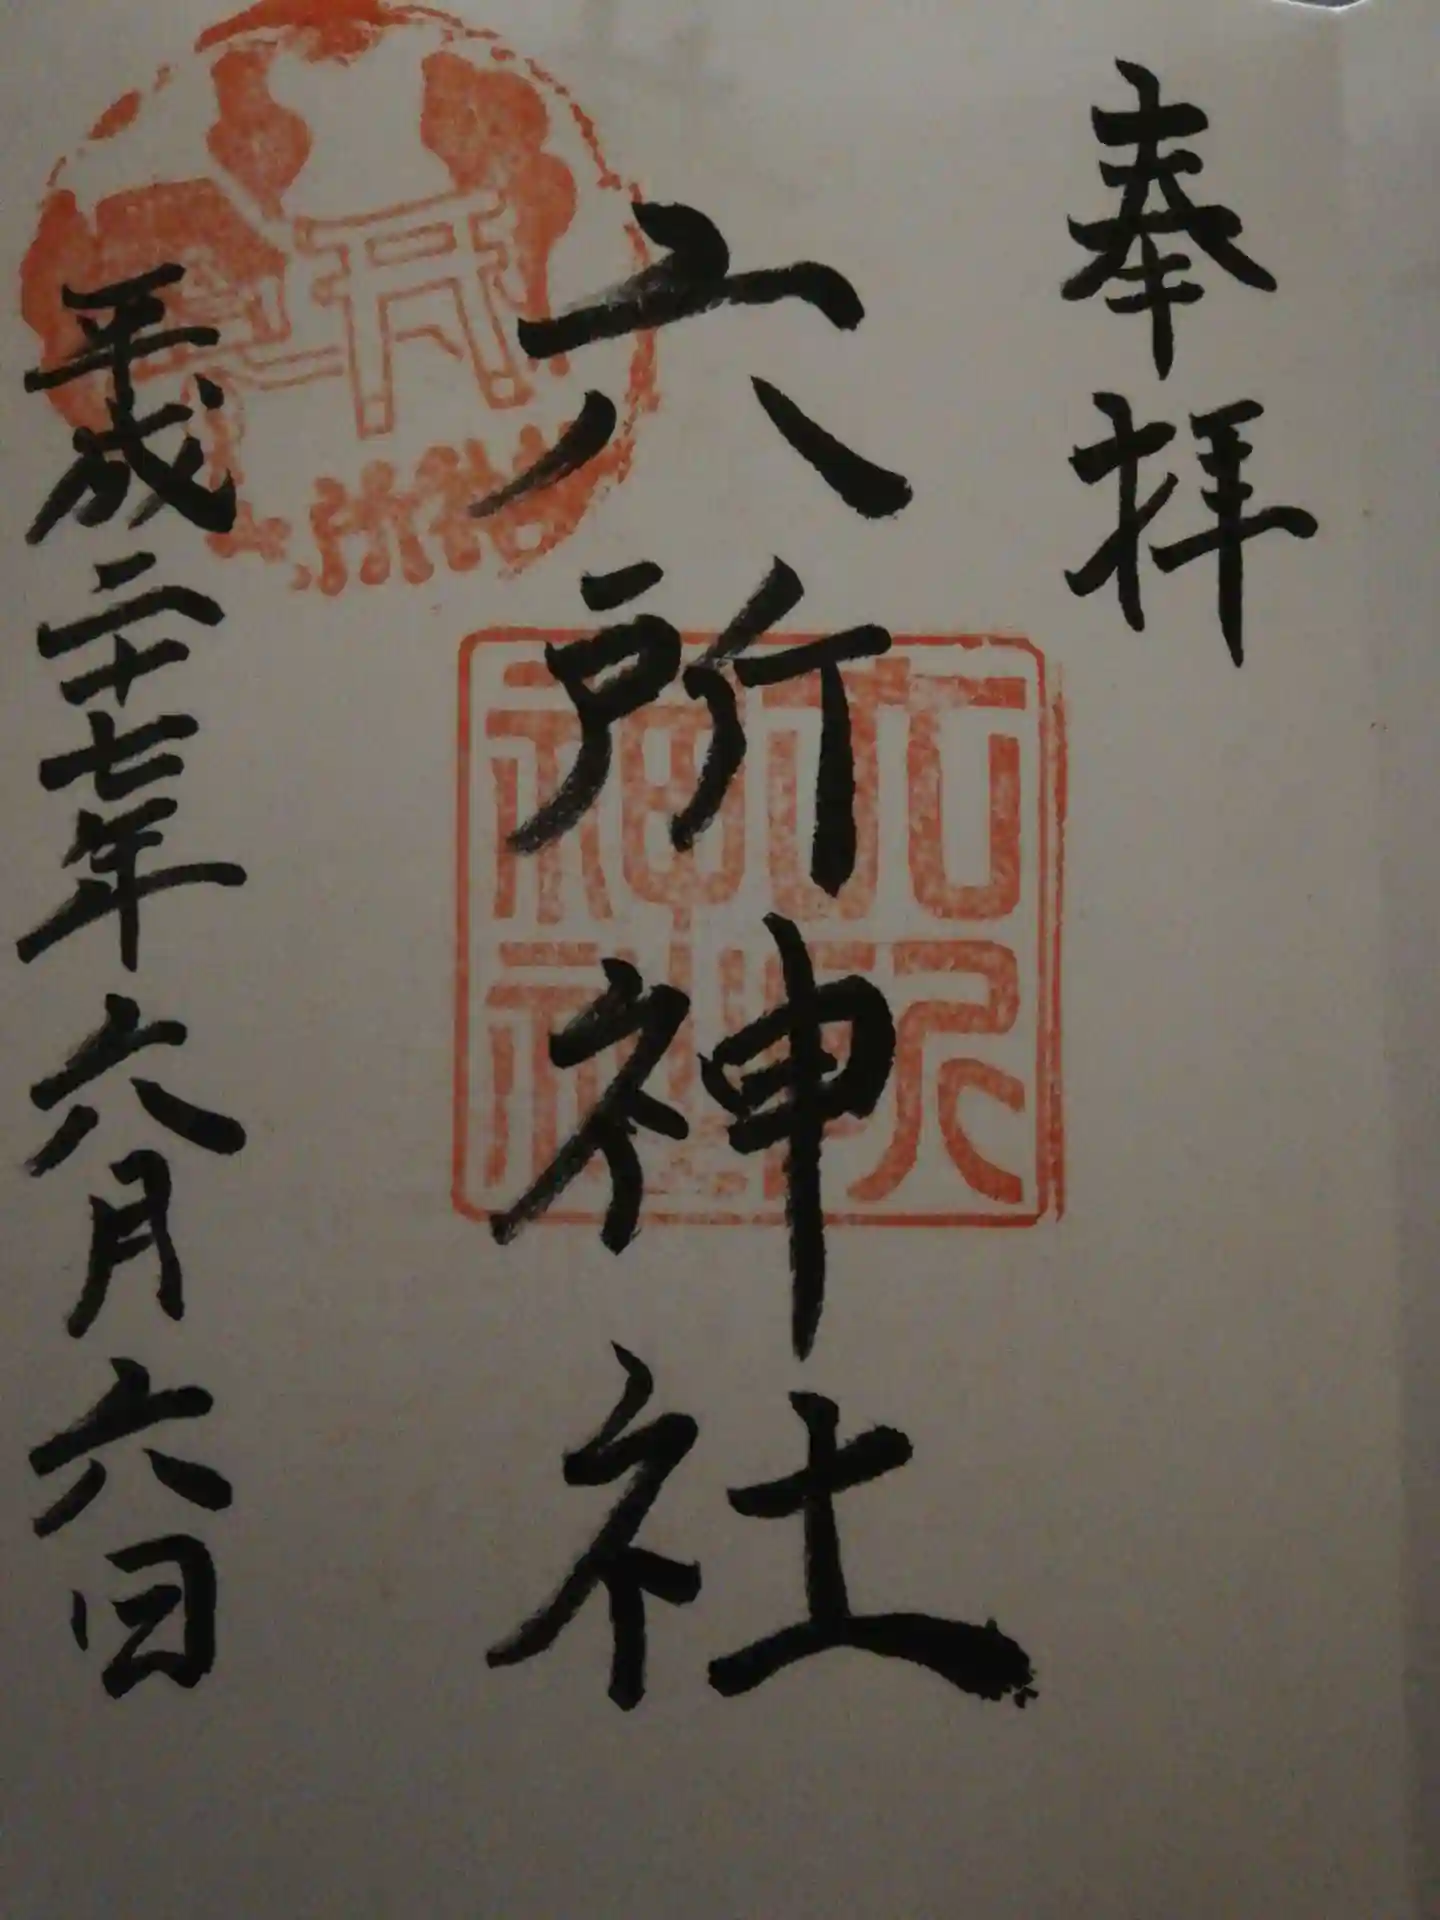 奉拝
六所神社
平成二十七年六月六日
六所神社
六所神社